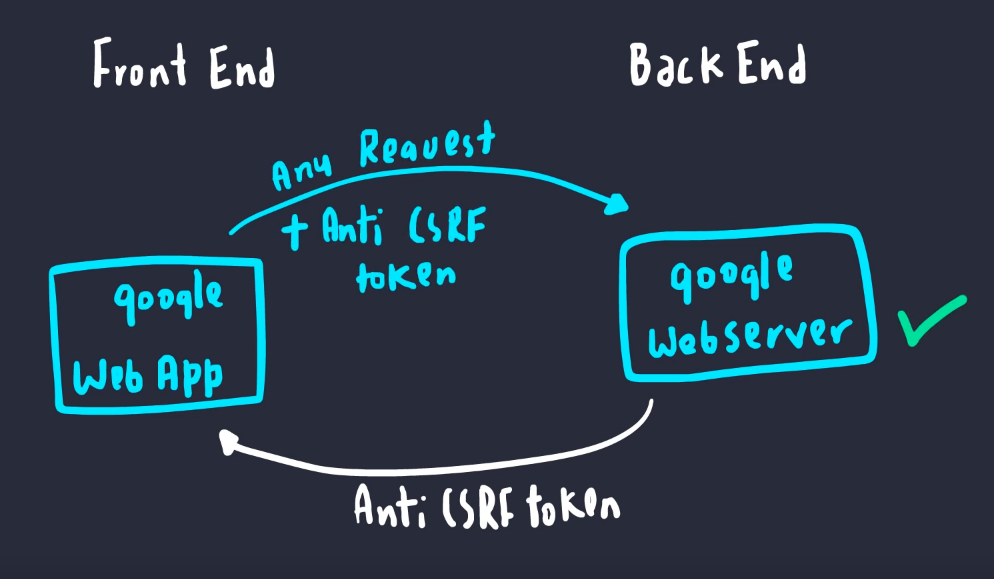 Front End
Back End
Any Request
+ Anti CSRF
token
google
Web App
google
Webserver
Anti CSRF token